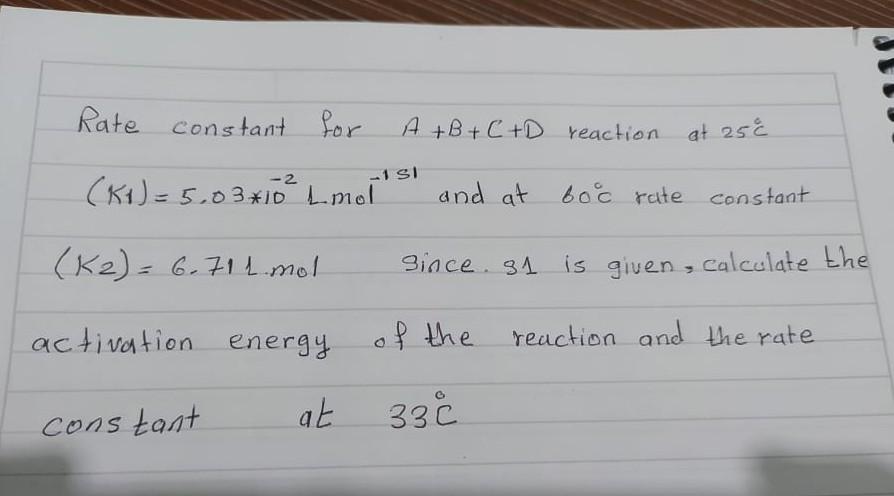 Rate constant for A+B+C+D reaction at 25°C
(K1) = 5.03*10⁻² L mol⁻¹ s1 and at 60°C rate constant
(K2) = 6.71 L.mol since. s1 is given, calculate the
activation energy of the reaction and the rate
constant at 33°C